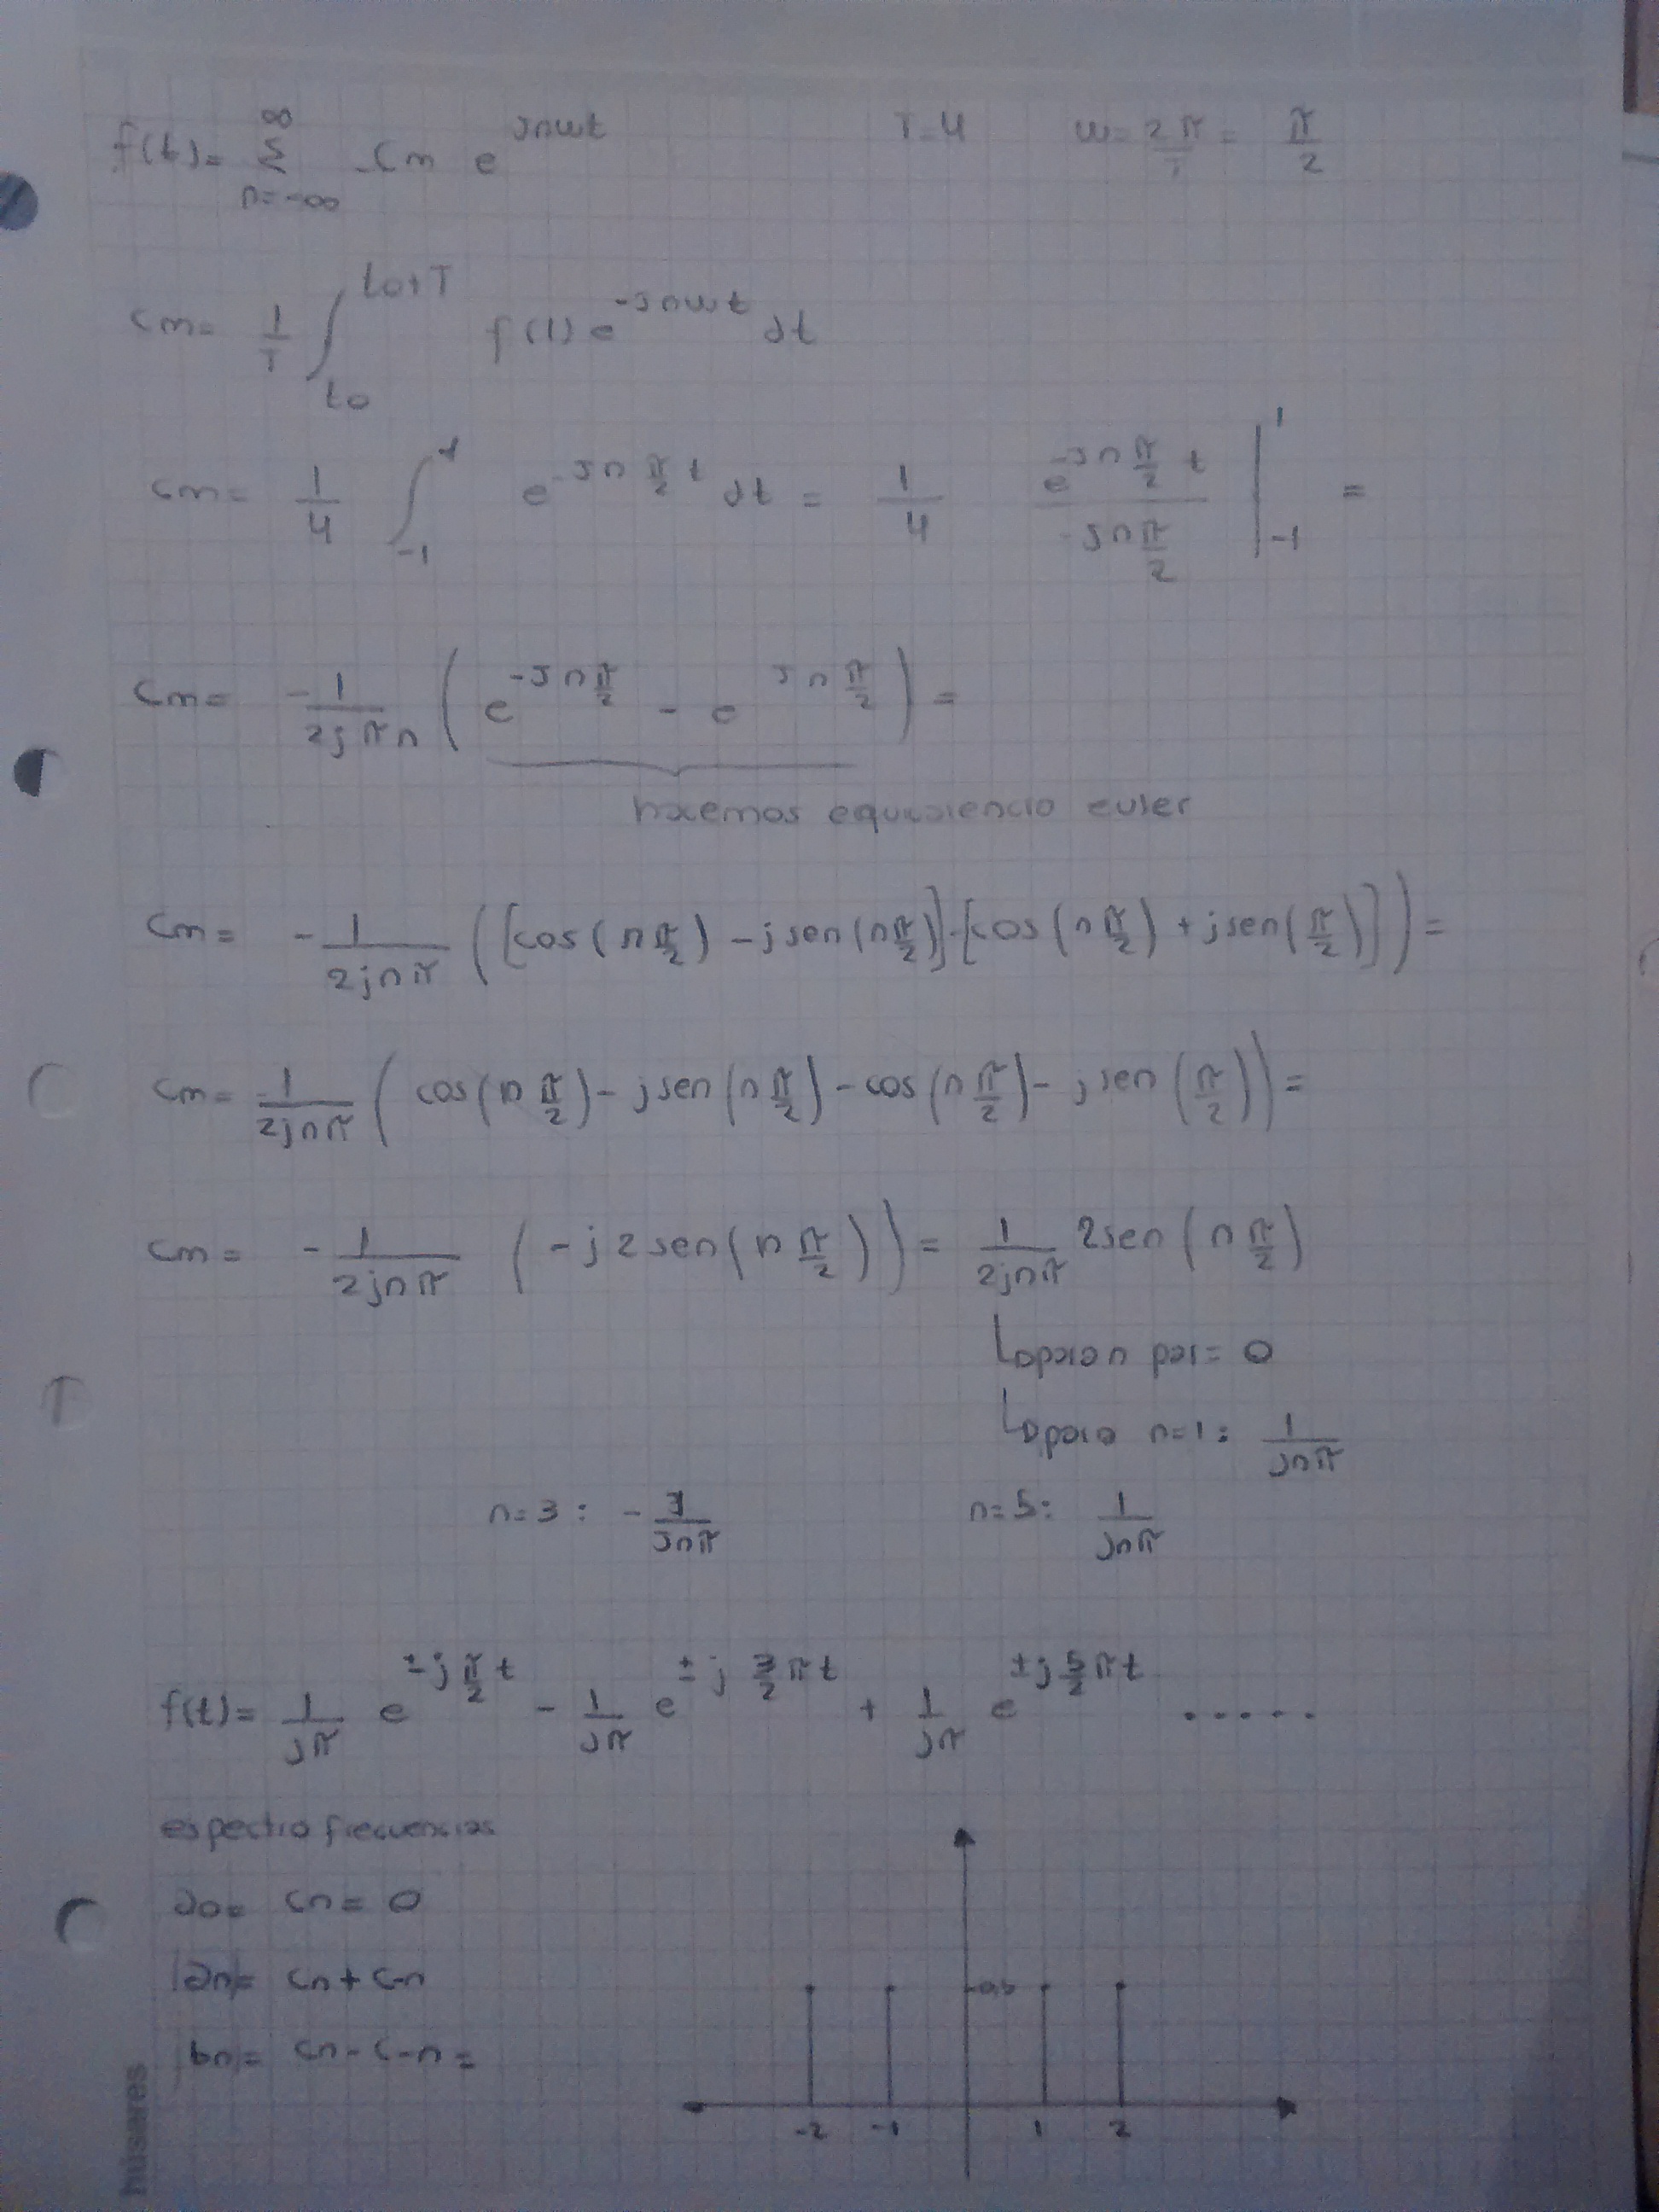 f(t)= ∞ Σ n=-∞ Cm e^jnwt T=4 w= 2π/T = π/2
Cm= 1/T ∫ to+T to f(t) e^-jnwt dt
Cm= 1/4 ∫ 1 -1 e^-jn π/2 t dt = 1/4 e^-jn π/2 t / -jn π/2 | 1 -1 =
Cm= -1/2jπn ( e^-jn π/2 - e^jn π/2 ) =
hacemos equivalencia euler
Cm= -1/2jnπ ([cos(n π/2) - jsen(n π/2)]-[cos(n π/2) + jsen(π/2)]) =
Cm= -1/2jnπ ( cos(n π/2) - jsen(n π/2) - cos(n π/2) - jsen(π/2)) =
Cm= -1/2jnπ (-j2sen(n π/2)) = 1/2jnπ 2sen(n π/2)
para n par= 0
para n=1: 1/jnπ
n=3: -1/jnπ n=5: 1/jnπ
f(t)= 1/jπ e^±j π/2 t - 1/jπ e^±j 3/2 πt + 1/jπ e^±j 5/2 πt .....
espectro frecuencias
ao= cn= 0
|an|= cn+c-n
|bn|= cn-c-n=
-2 -1 1 2
húsares